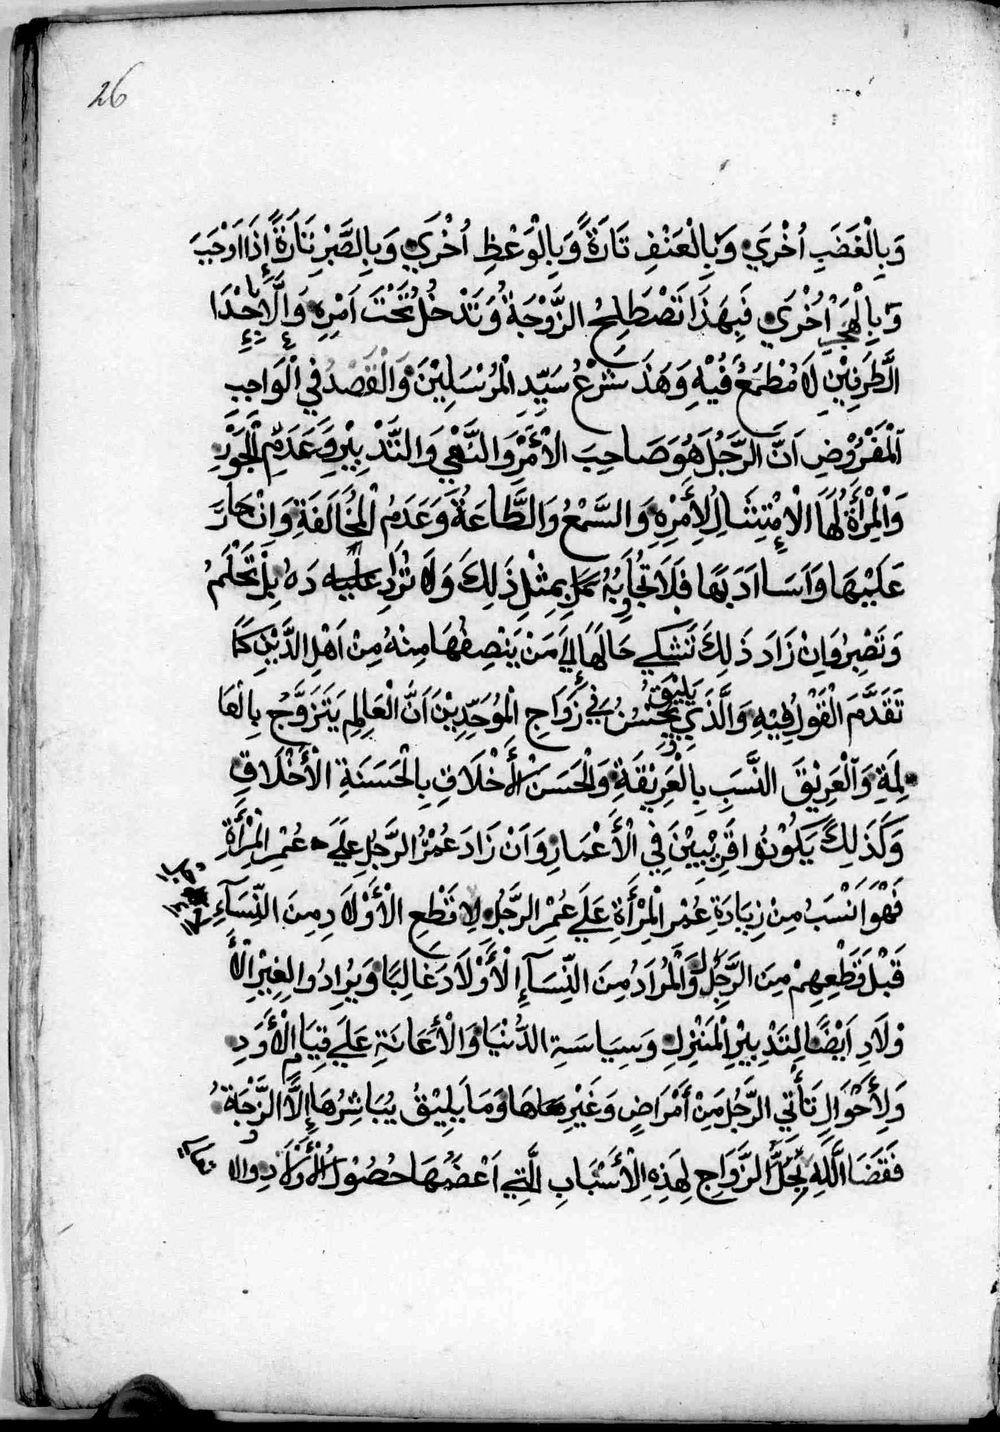 26
وَبِالْغَضَبِ اُخْرَي وَبِالْعَنْفِ تَارَةً وَبِالْوَعْظِ اُخْرَي وَبِالصَّبْرِ تَارَةً إِذَا اوْجَبَ
وَبِالْهَجْرِ اُخْرَي فَبِهَذَا تَصْطَلِحُ الزَّوْجَةُ وَتَدْخُلُ تَحْتَ اَمْرِهِ وَإِلَّا بِإِحْدَا
الَّطَرفِيْنِ لَا مُطمَعُ فُيْهِ وَهَذَ شَرْعُ سَيِّدِ الْمُرْسَلِيْنَ وَالْقَصْدُ فِي الْوَاجِبِ
الْمَفْرُوْضِ اَنَّ الرَّجُلَ هُوَ صَاحِبَ الْأَمْرِ وَالنَّهْي وَالتَّدْبِيْرِ وَعَدَمِ الْجَوْرِ
وَالْمِرْأَةُ لَهَا الْإِمْتِثَالُ لِأَمْرِهِ وَالسَّمْعُ وَالطَّاعَةُ وَعَدَمُ الْمُخَالَفَةِ وَانْ جَارَ
عَلَيْهَا وَاَسَا ادَبَهَا فَلَا تُجَاوِبُهُ بِمِثْلِ ذَلِكَ وَلَا تُرَادِدَهُ بِلْ تَحْلَمُ
وَتَصْبِرُ وَاِنْ زَادَ ذَلِكَ تَشكِي حَالَهَا إِلَي مَنْ يَنْصِفُهَا مِنْهُ مِنْ اَهْلِ الدِّيْنِ كَمَا
تَقَدَّمَ الْقَوْلُ فِيْهِ وَالَّذِي يَلِيْقُ وَيَحْسُنُ فِي زَوَاجِ الْمُوَحِّدِيْنَ اَنَّ الْعَالِمِ يَتَزَوَّجُ بِالْعَا
لِمَةِ وَالْعَرِيْقَ النَّسَبِ بِالْعَرِيْقَةِ وَالْحَسَنَ الْأَخْلَاقِ بِالْحَسَنَةِ الْأَخْلَاقِ
وَكَذَلِكَ يَكُوْنُوا قَرِيْبِيْنَ فِي الْأَعْمَارِ وَاَنْ زَادَ عُمْرُ الرَّجُلِ عَلَي عُمْرِ الْمِرْأَةِ
فَهْوَ انْسَبُ مِنْ زِيَادَةِ عُمْرِ الْمِرْأَةِ عَلَي عُمْرِ الرَّجُلِ لِاقَطْعِ الْأَوْلَادِ مِنَ النِّسَآءِ
قَبْلَ قَطْعِهِمْ مِنَ الرَّجُلِ وَالْمُرَادُ مِنَ النِّسَآءِ الْأَوْلَادَ غَالِبًا وَيُرَادُوا لِغِيْرِ الْأَ
وْلَادِ اَيْضًا لِتَدْبِيْرِ الْمَنْزِلِ وَسِيَاسَةِ الدُّنْيَا وَالْأَعَانَةِ عَلَي قِيَامِ الْأَوَدِ
وَلِأَحْوَالِ تَأْتِي الرَّجُلَ مِنْ أَمْرَاضٍ وَغَيْرِهَا وَمَا يَلِيْقُ يُبَاشِرُهَا إِلَّا الزَّوْجَةُ
فَقَضَا اللَّهِ بِحَلِّ الزَّوَاجِ لِهَذِهِ الْأَسْبَابِ الَّتِي اَعْضَمُهَا حُصُوْلُ الْأَوْلَادِ وَالا